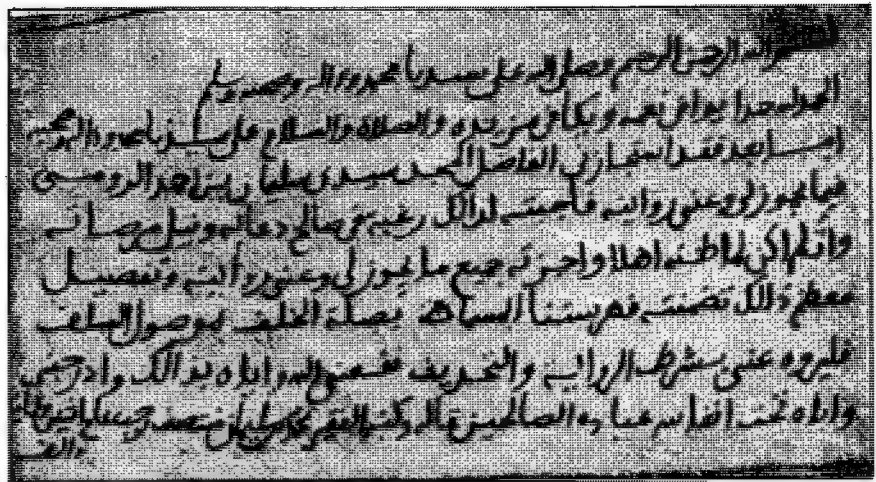 بسم الله الرحمن الرحيم وصلى الله على سيدنا محمد وءاله وصحبه وسلم
الحمد لله حمدا يوافي نعمه ويكافئ مزيده والصلاة والسلام على سيدنا محمد وءاله وصحبه
اما بعد فقد استجازني الفاضل سيدي سليمان بن احمد الرومي
فيما يجوز لي وعني روايته فأجبته لذالك رغبة في صالح دعائه ونيل مرضاته
وان لم اكن لما ظنه اهلا واجزته جميع ما يجوز لي وعني روايته وتفصيل
معظم ذالك تضمنته فهرستنا المسماة بصلة الخلف بموصول السلف
فليروه عني بشرط الرواية والله واياه بذالك
واياه تحت انفاس عباده الصالحين قاله وكتبه الفقير محمد بن سليمان منتصف
والف